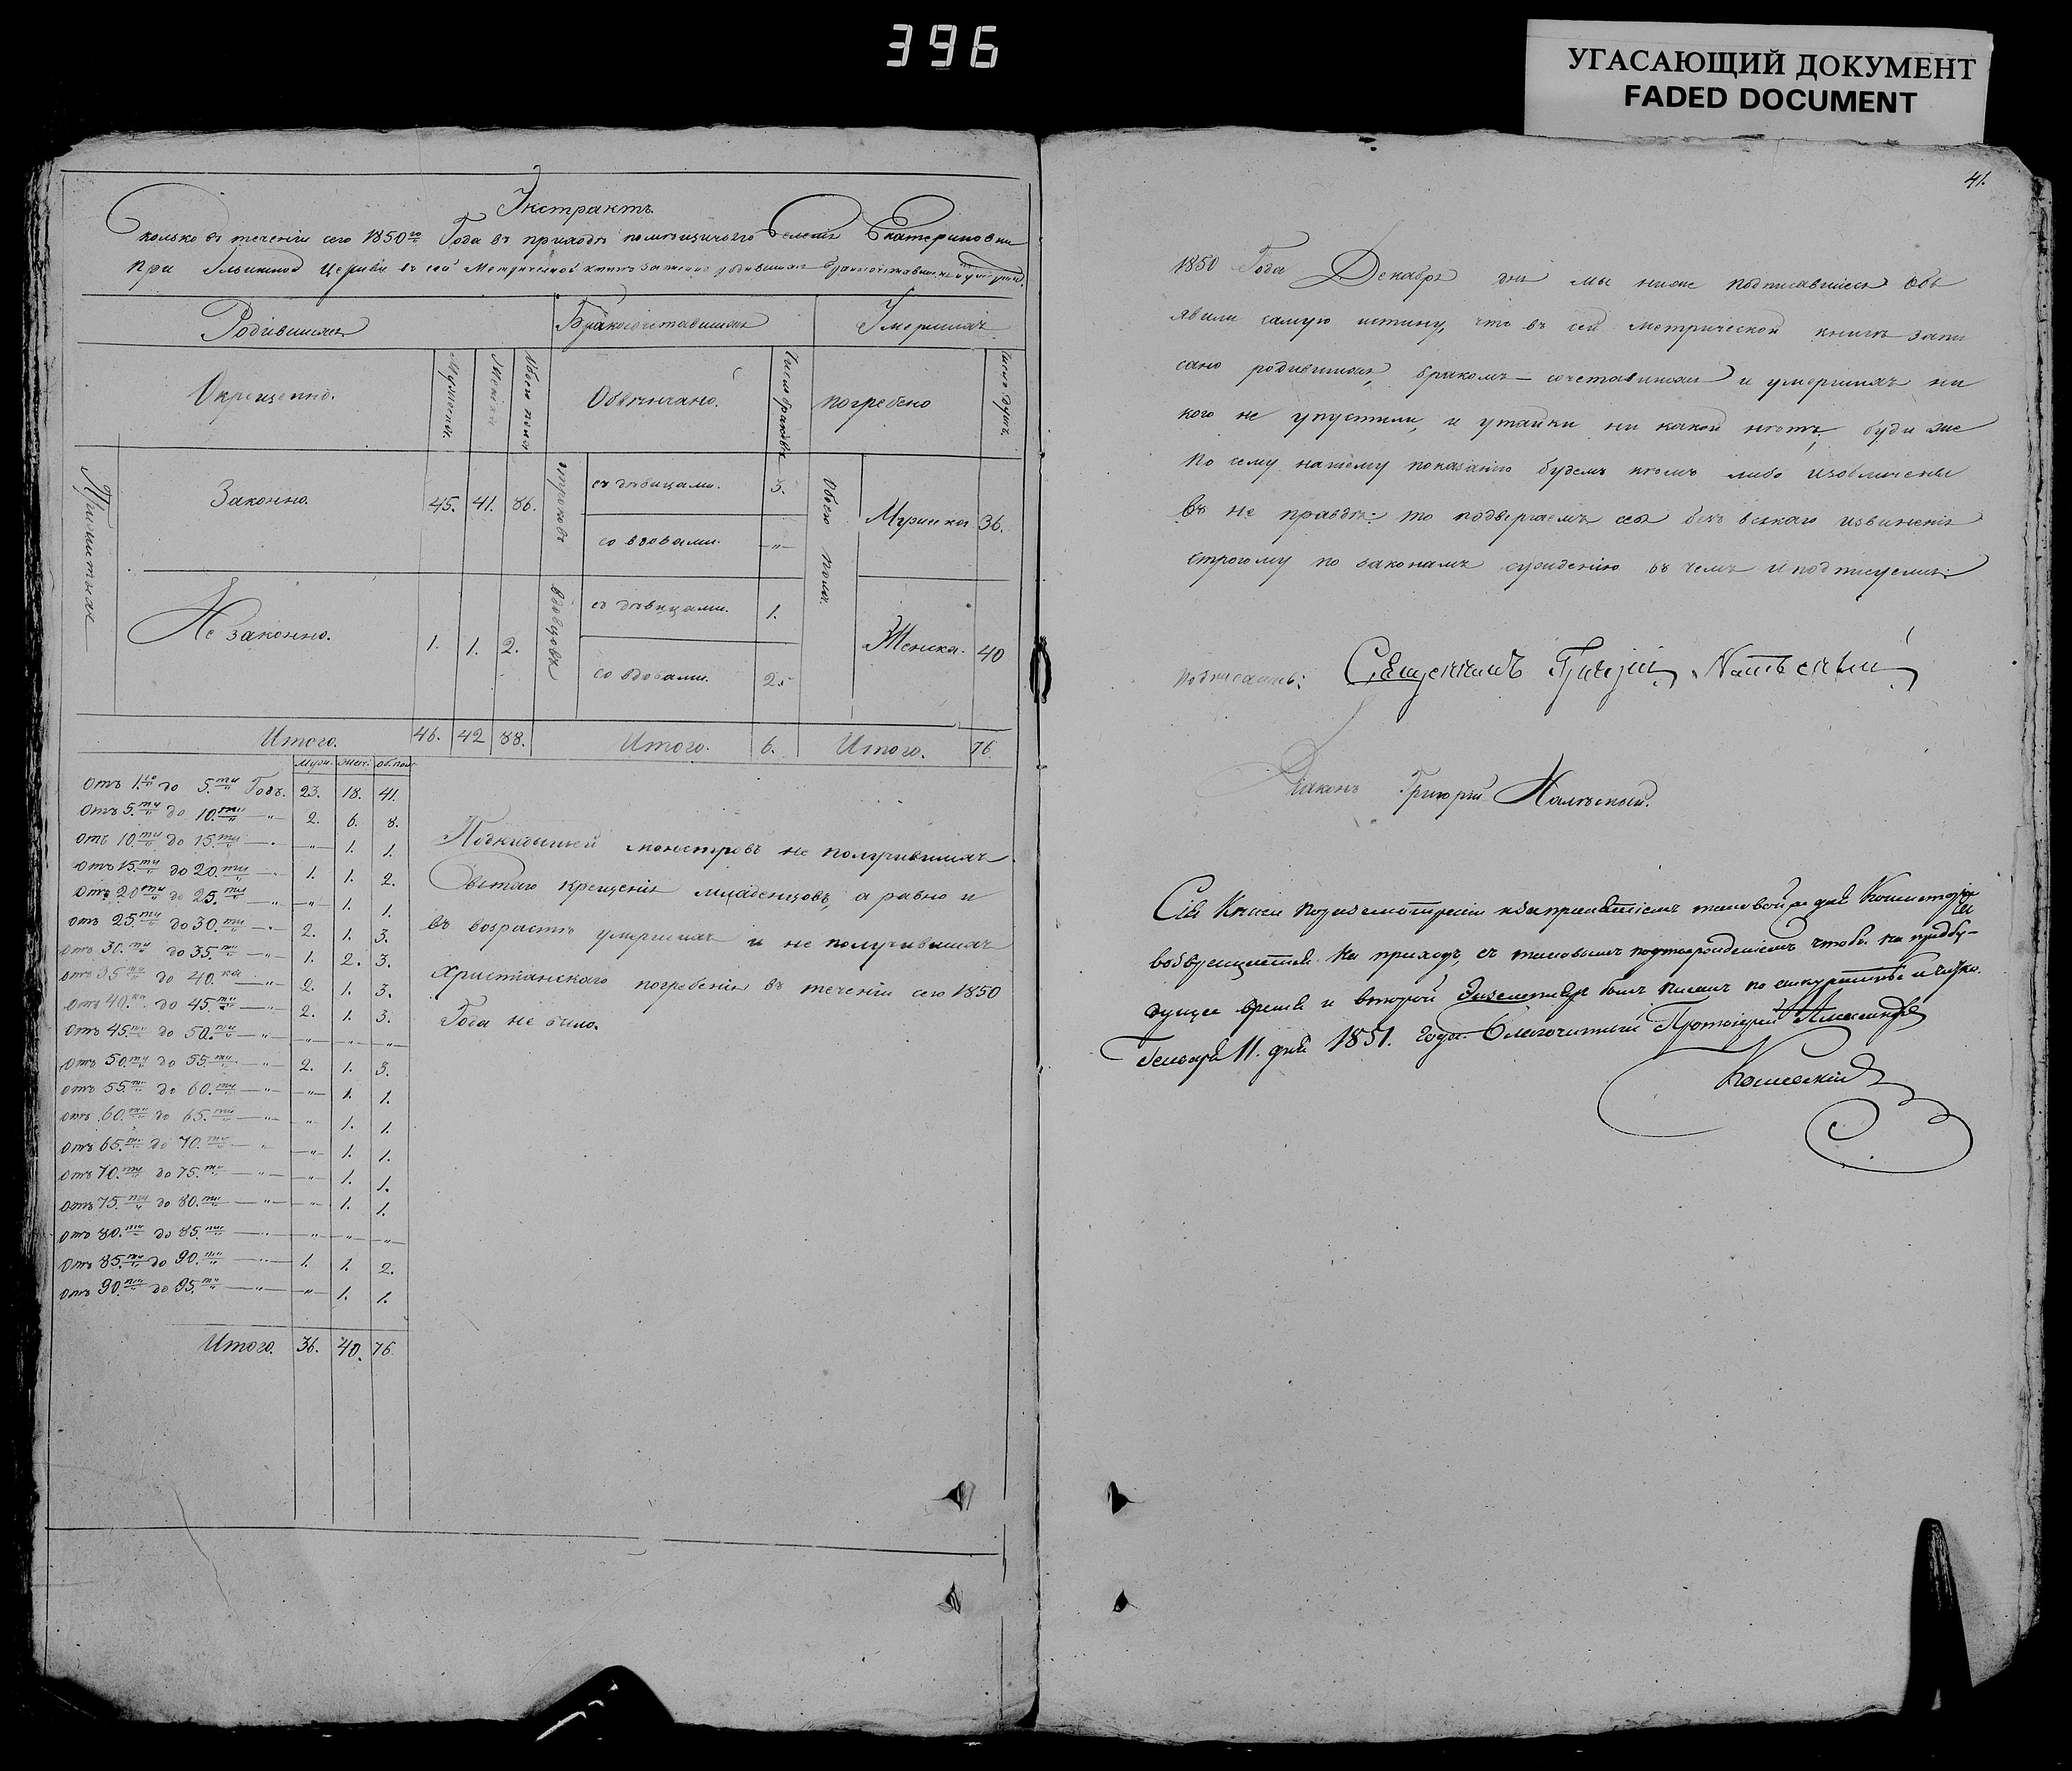 396
УГАСАЮЩИЙ ДОКУМЕНТ
FADED DOCUMENT
Экстрактъ
Сколько въ теченіи сего 1850го Года въ приходѣ помѣщичьяго Селенія Екатериновки
при Ильинской Церкви въ сей Метрической книгѣ записано родившихся бракосочетавшихся и умершихъ.
Родившихся
Бракосочетавшихся
Умершихъ
Окрещенно.
Мужеска.
Женска
Обоего пола
Обвѣнчано.
Число браковъ
погребено
число душъ.
Законно.
45. 41. 86.
отроковъ
съ дѣвицами.
3.
со вдовами.
-„-
Обоего пола.
Мужеска 36.
Не законно.
1. 1. 2.
вдовцовъ
съ дѣвицами.
1.
со вдовами.
2.
Женска. 40
Итого. 46. 42 88. Итого. 6. Итого. 76
Муж. Жен: Об. пол
Отъ 1.го до 5.ти Годъ. 23. 18. 41.
Отъ 5.ти до 10.ти -„- 2. 6. 8.
Отъ 10.ти до 15.ти -„- -„- 1. 1.
Отъ 15.ти до 20.ти -„- 1. 1. 2.
Отъ 20ти до 25.ти -„- -„- 1. 1.
Отъ 25.ти до 30.ти -„- 2. 1. 3.
Отъ 30.ти до 35.ти -„- 1. 2. 3.
Отъ 35ти до 40.ка -„- 2. 1. 3.
Отъ 40.ка до 45ти -„- 2. 1. 3.
Отъ 45ти до 50.ти -„- -„- -„- -„-
Отъ 50.ти до 55.ти -„- 2. 1. 3.
Отъ 55.ти до 60.ти -„- -„- 1. 1.
Отъ 60.ти до 65.ти -„- -„- 1. 1.
Отъ 65.ти до 70.ти -„- -„- 1. 1.
Отъ 70.ти до 75.ти -„- -„- 1. 1.
Отъ 75.ти до 80.ти -„- -„- 1. 1.
Отъ 80.ти до 85.ти -„- -„- -„- -„-
Отъ 85.ти до 90.ти -„- 1. 1. 2.
Отъ 90ти до 95.ти -„- -„- 1. 1.
Итого. 36. 40. 76.
Подкидышей монстровъ не получившихъ
Святаго крещенія младенцовъ, а равно и
въ возрастѣ умершихъ и не получившихъ
Христіанскаго погребенія въ теченіи сего 1850
Года не было.
41.
1850 Года Декабря дня мы ниже подписавшіеся объ
явили самую истину, что въ сей метрической книгѣ запи
сано родившихся, бракомъ-сочетавшихся и умершихъ ни
кого не упустили, и утайки ни какой нѣтъ, буди же
по сему нашему показанію будемъ кѣмъ либо изобличены
въ не правдѣ: то подвергаемъ себя безъ всякаго извиненія
строгому по законамъ сужденію въ чемъ и подписуемся:
Подписались: Священникъ
Діаконъ Григорій
Сія Книга по
возвращается на приходъ, съ таковымъ подтвержденіемъ чтобы на предбу-
дущее время и второй экземпляръ былъ писанъ по аккуратнѣе и чище.
Генваря 11. дня 1851. года. Благочинный Протоіерей Александръ